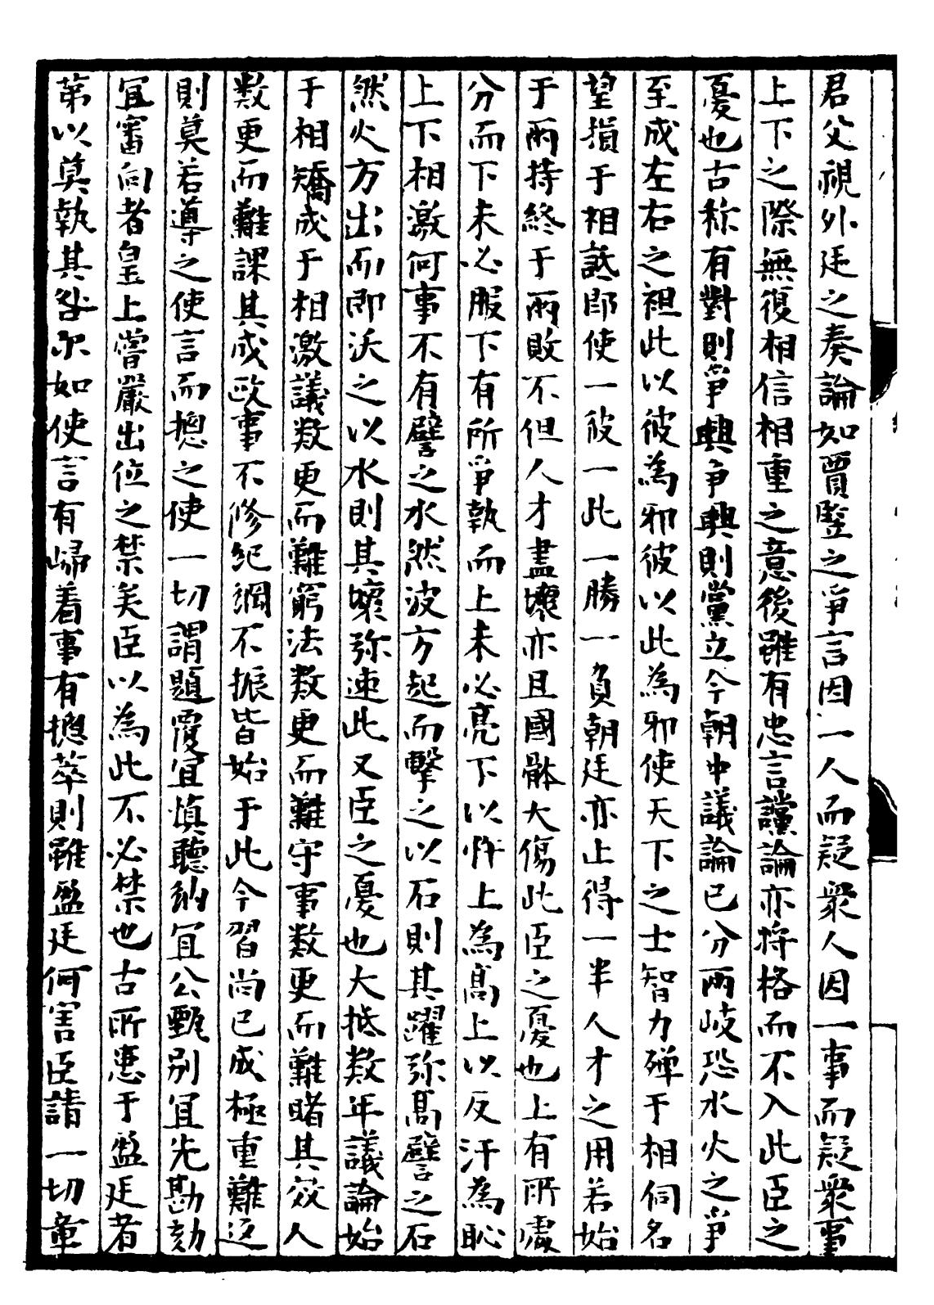 君父視外廷之奏論如賈豎之爭言因一人而疑衆人因一事而疑衆事
上下之際無復相信相重之意後雖有忠言讜論亦將格而不入此臣之
憂也古称有對則爭興爭興則黨立今朝中議論已分兩岐恐水火之爭
至成左右之袒此以彼為邪彼以此為邪使天下之士智力殫于相伺名
望損于相詆即使一彼一此一勝一負朝廷亦止得一半人才之用若始
于兩持終于兩敗不但人才盡壞亦且國體大傷此臣之憂也上有所處
分而下未必服下有所爭執而上未必亮下以忤上為高上以反汗為恥
上下相激何事不有譬之水然波方起而擊之以石則其躍弥高譬之石
然火方出而即沃之以水則其壞弥速此又臣之憂也大抵数年議論始
于相矯成于相激議数更而難窮法数更而難守事数更而難睹其效人
数更而難課其成政事不修紀綱不振皆始于此今習尚已成極重難返
則莫若導之使言而揔之使一切謂題覆宜慎聽納宜公甄别宜先勘劾
宜審向者皇上嘗嚴出位之禁矣臣以為此不必禁也古所患于盈廷者
第以莫執其咎尔如使言有歸着事有揔萃則雖盈廷何害臣請一切章